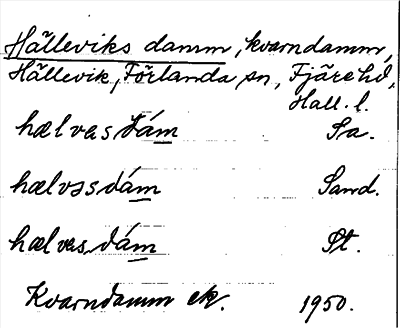 Hälleviks damm, kvarndamm,
Hällevik, Förlanda sn, Fjäre hd,
Hall. l.
hælvəsdám Sa.
hælvssdám Sand.
hælvəsdám St.
Kvarndamm ek. 1950.